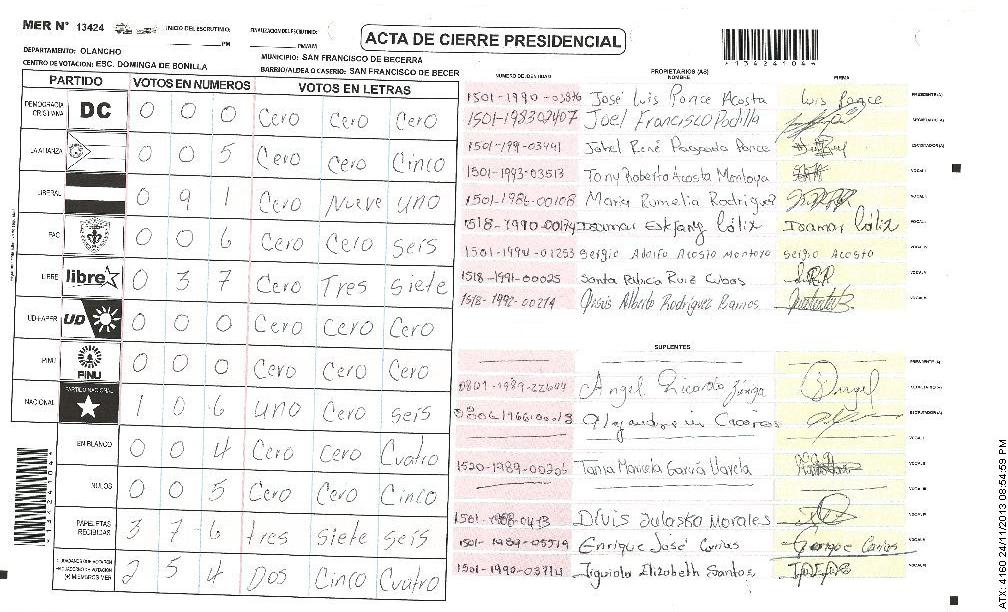 MER N° 13424
INICIO DEL ESCRUTINIO:
PM
FINALIZACION DEL ESCRUTINIO:
PM/AM
ACTA DE CIERRE PRESIDENCIAL
134241044
DEPARTAMENTO: OLANCHO
MUNICIPIO: SAN FRANCISCO DE BECERRA
CENTRO DE VOTACION: ESC. DOMINGA DE BONILLA
BARRIO/ALDEA O CASERIO: SAN FRANCISCO DE BECER
PARTIDO VOTOS EN NUMEROS VOTOS EN LETRAS
DEMOCRACIA CRISTIANA DC 0 0 0 Cero Cero Cero
LA ALIANZA 0 0 5 Cero Cero Cinco
LIBERAL 0 9 1 Cero Nueve uno
PAC 0 0 6 Cero Cero seis
LIBRE libre 0 3 7 Cero Tres siete
UD-FAPER UD 0 0 0 Cero Cero Cero
PINU PINU 0 0 0 Cero Cero Cero
NACIONAL PARTIDO NACIONAL 1 0 6 uno Cero seis
EN BLANCO 0 0 4 Cero Cero Cuatro
NULOS 0 0 5 Cero Cero Cinco
PAPELETAS RECIBIDAS 3 7 6 tres siete seis
CIUDADANOS QUE VOTARON
(+) MIEMBROS MER 2 5 4 Dos Cinco Cuatro
134241044
PROPIETARIOS (AS)
NUMERO DE IDENTIDAD NOMBRE FIRMA
1501-1990-03876 José Luis Ponce Acosta Luis Ponce PRESIDENTE(A)
1501-198302407 Joel Francisco Padilla SECRETARIO(A)
1501-199-03441 Jobel René Ponce ESCRUTADOR(A)
1501-1993-03513 Tony Roberto Acosta Montoya VOCAL I
1501-1986-00108 Maria Rumelia Rodriguez VOCAL
1518-1990-00174 Isamar Lólix Isamar Lólix VOCAL
1501-1994-01253 Sergio Adolfo Acosta Montoya Sergio Acosta VOCAL
1518-1991-00025 Santa Patricia Ruiz Cubas VOCAL
1518-1992-00214 Jesús Alberto Rodriguez Ramos VOCAL
SUPLENTES
PRESIDENTE(A)
0801-1989-22644 Angel Ricardo Zúniga Angel SECRETARIO(A)
ESCRUTADOR(A)
VOCAL I
1520-1989-00205 Tania Mariela Garcia Varela VOCAL II
VOCAL III
1501-1988-0473 Divis Julaska Morales VOCAL
1501-1989-05519 Enrique José Carias Enrique Carias VOCAL
1501-1990-03714 Elizabeth Santos VOCAL
ATX: 4160 24/11/2013 08:54:59 PM